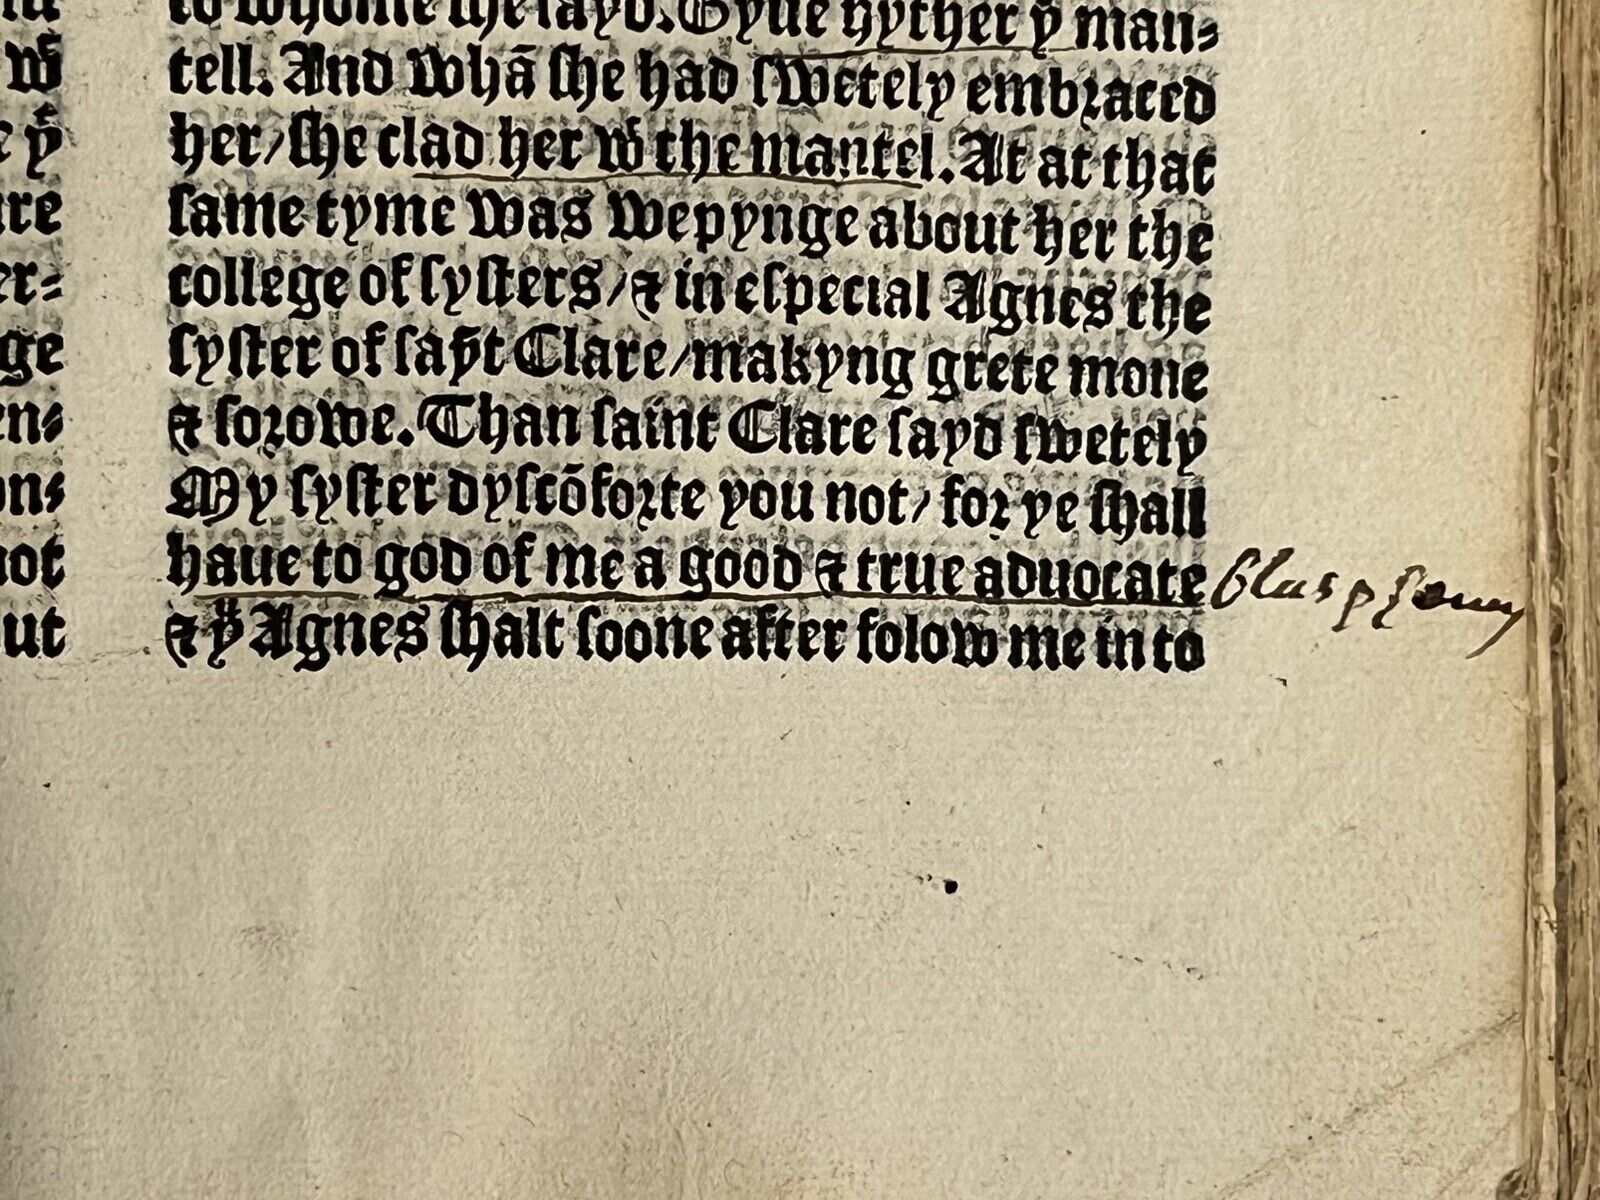 wt
e yͤ
ure
er=
ge
en=
ons
not
ut
to whome she sayd. Gyue hyther yͤ man=
tell. And whā she had swetely embraced
her/ she clad her wͭ the mantel. At at that
same tyme was wepynge about her the
college of systers/ & in especial Agnes the
syster of saynt Clare/ makyng grete mone
& sorowe. Than saint Clare sayd swetely
My syster dyscōforte you not/ for ye shall
haue to god of me a good & true aduocate
& yͧ Agnes shalt soone after folow me in to
blasphemy